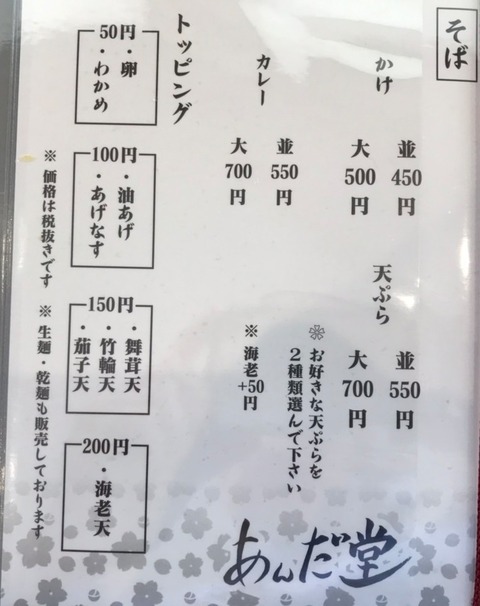 そば
かけ
並
450
円
大
500
円
天ぷら
並
550
円
大
700
円
❊お好きな天ぷらを
２種類選んで下さい
※ 海老+50円
カレー
並
550
円
大
700
円
トッピング
50円
・卵
・わかめ
100円
・油あげ
・あげなす
150円
・舞茸天
・竹輪天
・茄子天
200円
・海老天
※ 価格は税抜きです
※ 生麺・乾麺も販売しております
あんだ堂